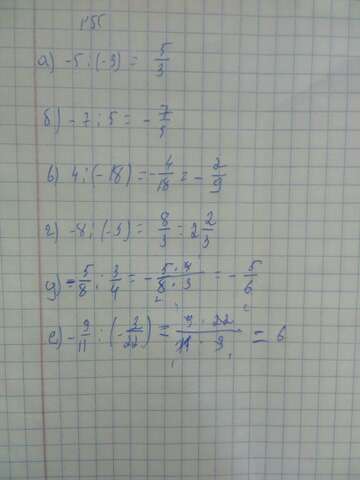 155
а) -5 : (-3) = 5/3
б) -7 : 5 = - 7/5
в) 4 : (-18) = - 4/18 = - 2/9
г) -8 : (-3) = 8/3 = 2 2/3
д) - 5/8 : 3/4 = - 5·4/8·3 = - 5/6
е) - 9/11 : (- 3/22) = 9·22/11·3 = 6